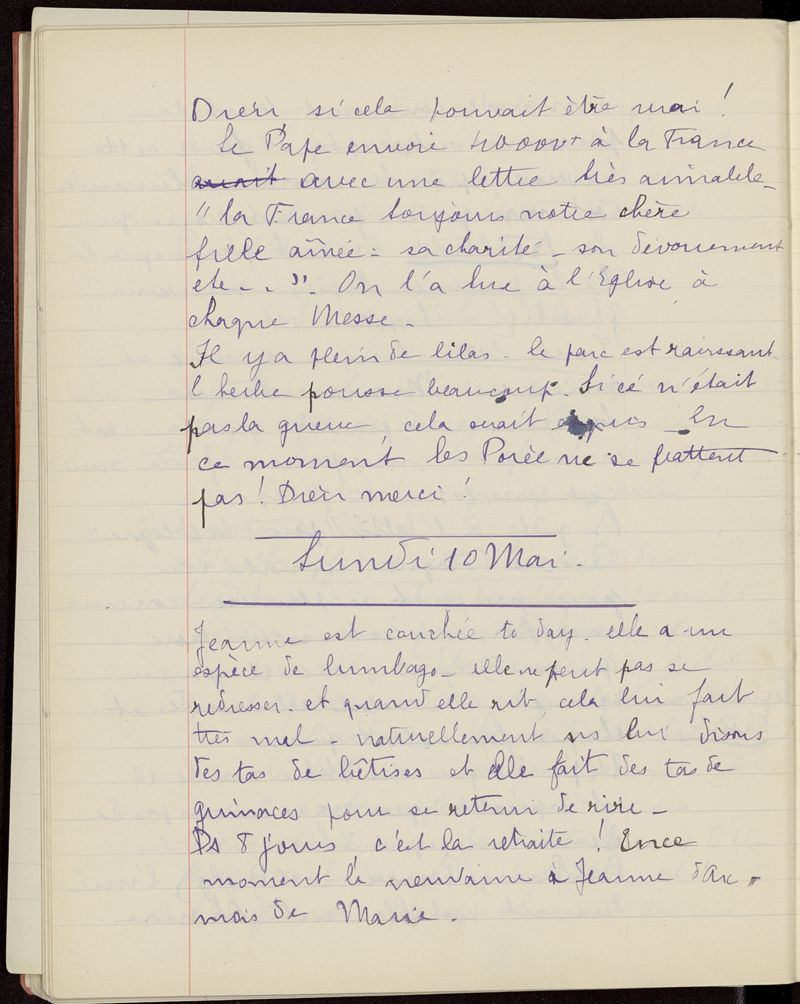 Dieu, si cela pouvait être vrai !
Le Pape envoie 40000f à la France
avait avec une lettre très aimable -
" la France toujours notre chère
fille aînée - sa charité - son dévouement
etc - . ". On l'a lue à l'Eglise, à
chaque Messe -
Il y a plein de lilas - le parc est ravissant -
l'herbe pousse beaucoup. Si ce n'était
pas la guerre, cela serait exquis - En
ce moment les Porée ne se battent
pas ! Dieu merci !
Lundi 10 Mai .
Jeanne est couchée to day . elle a un
espèce de lumbago - elle ne peut pas se
redresser . et quand elle rit, cela lui fait
très mal - naturellement ns lui disons
des tas de bêtises et elle fait des tas de
grimaces pour se retenir de rire -
Ds 8 jours c'est la retraite ! En ce
moment la neuvaine à Jeanne d'Arc -
mois de Marie .